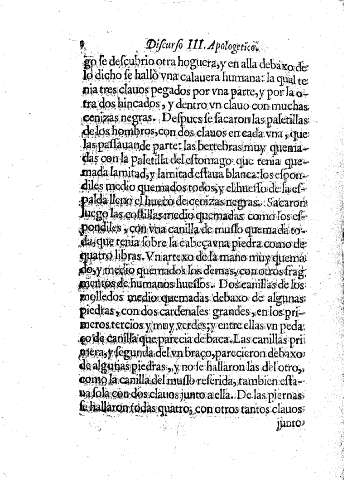 8 Discurso III. Apologetico.
go se descubrio otra hoguera, y en alla debaxo de
lo dicho se hallò vna calauera humana: la qual te
nia tres clauos pegados por vna parte, y por la o
tra dos hincados, y dentro vn clauo con muchas
cenizas negras. Despues se sacaron las paletillas
de los hombros, con dos clauos en cada vna, que
las passauan de parte: las bertebras muy quema-
das con la paletilla del estomago que tenia que-
mada la mitad, y la mitad estaua blanca: los espon-
diles medio quemados todos, y el huesso de la es-
palda lleno el hueco de cenizas negras. Sacaron
luego las costillas medio quemadas como los es-
pondiles, con vna canilla de muslo quemada to-
da, que tenia sobre la cabeça vna piedra como de
quatro libras. Vn artexo de la mano muy quema
do, y medio quemados los demas, con otros frag
mentos de humanos huessos. Dos canillas de los
molledos medio quemadas debaxo de algunas
piedras, con dos cardenales grandes, en los pri-
meros tercios y muy verdes; y entre ellas vn peda
ço de canilla que parecia de baca. Las canillas pri
mera, y segunda del vn braço, parecieron debaxo
de algunas piedras, y no se hallaron las del otro,
como la canilla del muslo referida, tambien esta-
ua sola con dos clauos junto a ella. De las piernas
se hallaron todas quatro, con otros tantos clauos
junto